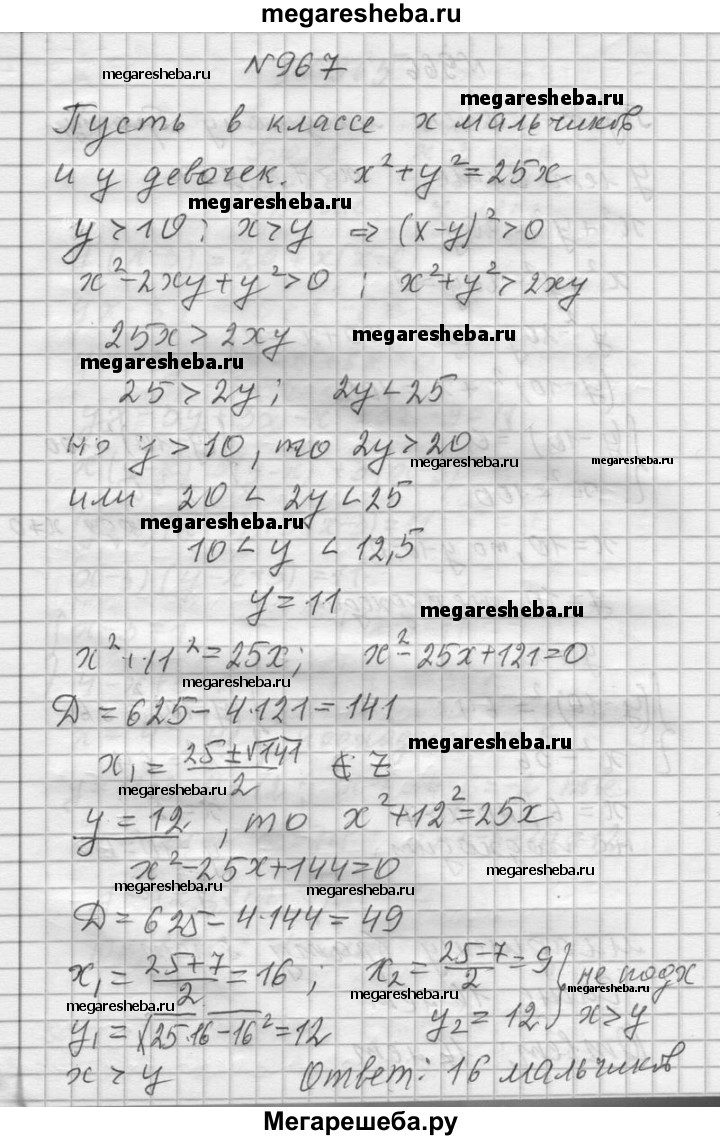 megaresheba.ru
№967
megaresheba.ru
megaresheba.ru
Пусть в классе x мальчиков
и y девочек. x²+y²=25x
megaresheba.ru
y>10; x>y ⇒ (x-y)²>0
x²-2xy+y²>0 ; x²+y²>2xy
25x>2xy megaresheba.ru
megaresheba.ru
25>2y; 2y<25
но y>10, то 2y>20
megaresheba.ru megaresheba.ru
или 20<2y<25
megaresheba.ru
10<y<12,5
y=11
megaresheba.ru
x²+11²=25x; x²-25x+121=0
megaresheba.ru
D=625-4·121=141
megaresheba.ru
x₁=(25±√141)/2 ∉ Z
megaresheba.ru
y=12, то x²+12²=25x
x²-25x+144=0
megaresheba.ru megaresheba.ru megaresheba.ru
D=625-4·144=49
x₁=(25+7)/2=16; x₂=(25-7)/2=9) не подх
megaresheba.ru megaresheba.ru
y₁=√(25·16-16²)=12 y₂=12) x>y
x>y Ответ: 16 мальчиков
Мегарешеба.ру